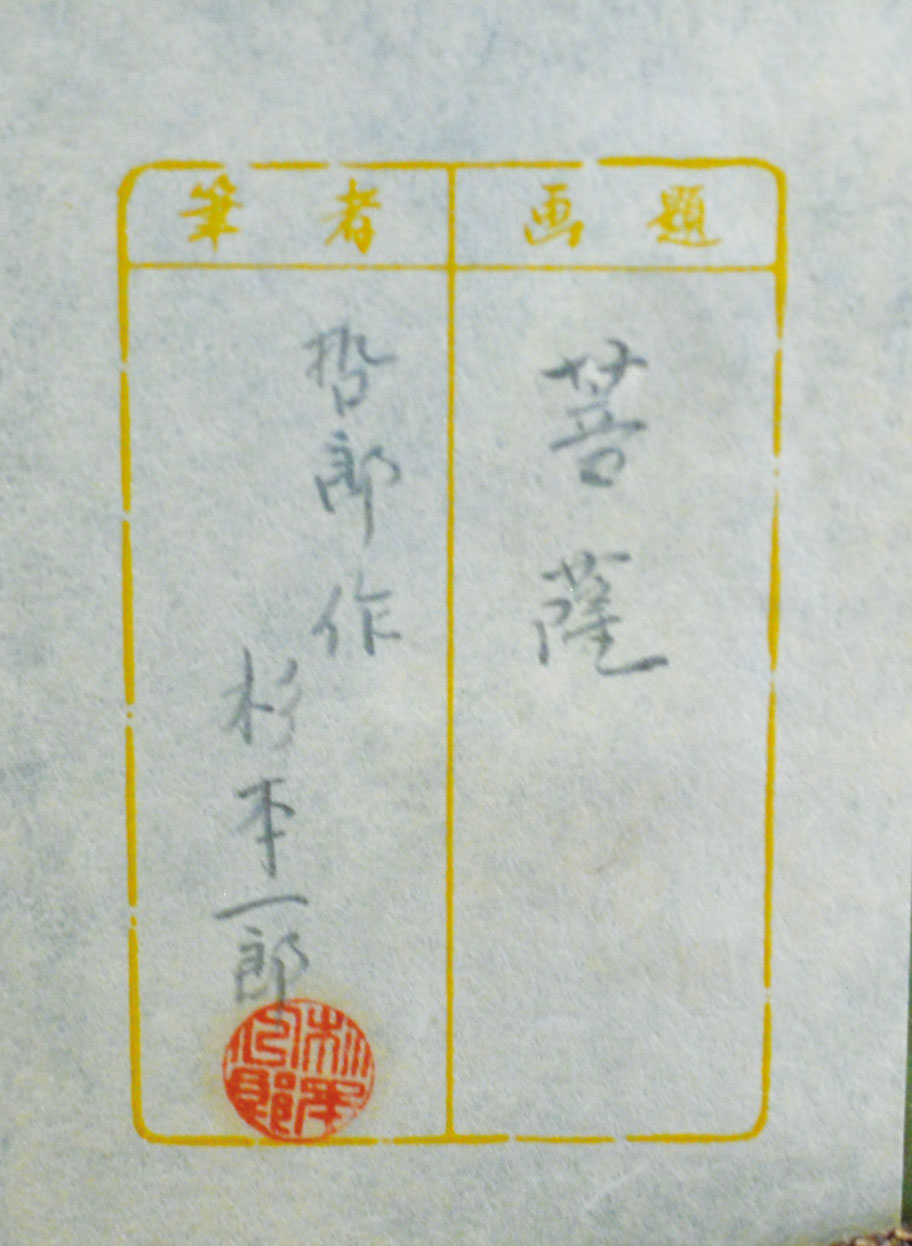 画題
菩薩
筆者
哲郎作
杉本一郎